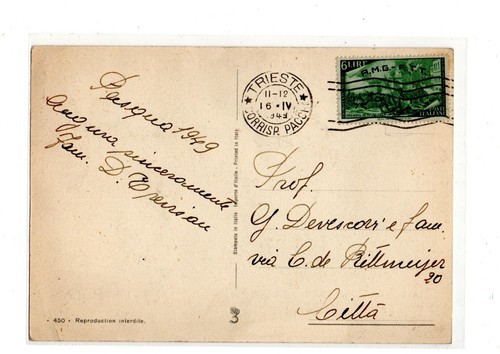 Pasqua 1949
Augura sinceramente
fam. D.
TRIESTE
11-12
16·IV
1949
CORRISP. PACCHI
6 LIRE
A.M.G. - F.T.T.
POSTE ITALIANE
Stampata in Italia - Imprimé d'Italie - Printed in Italy
Prof.
G. Devescovi e fam.
via C. de Rittmeijer
20
Città
450 - Reproduction interdite.
3